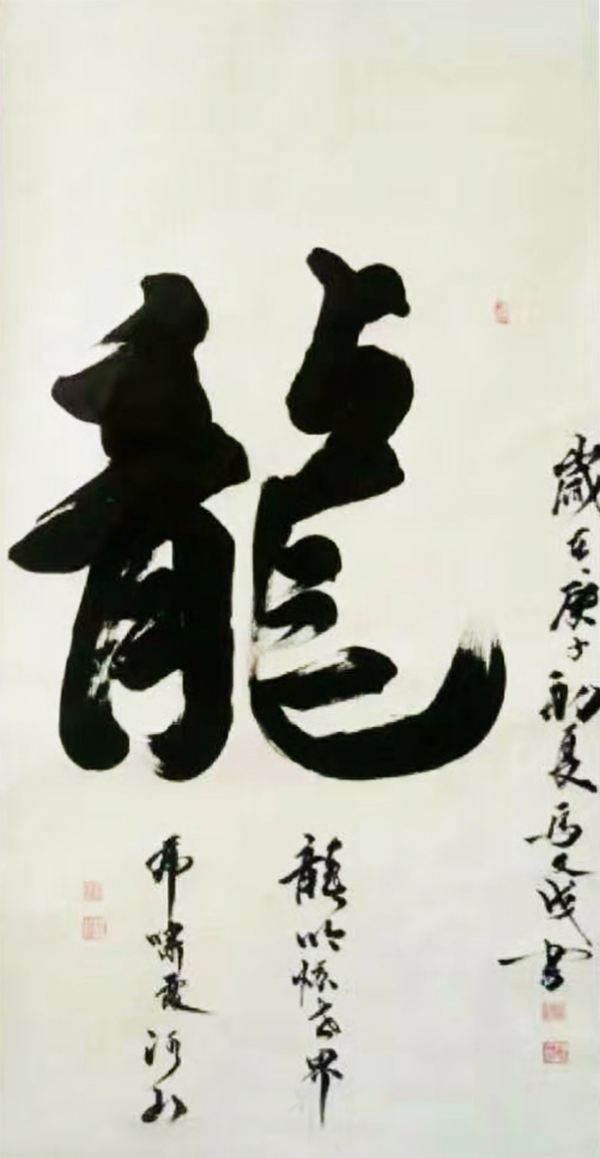 龍
龍吟惊世界
虎嘯震河山
歲在庚子初夏馬文成書